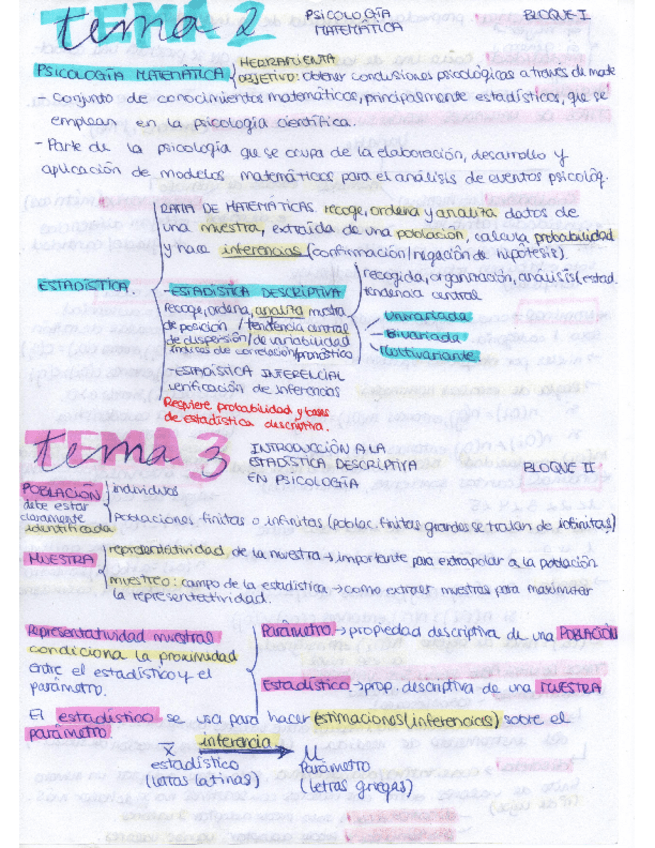 tema 2
TEMA 2
PSICOLOGÍA
MATEMÁTICA
BLOQUE I
PSICOLOGÍA MATEMÁTICA
HERRAMIENTA
OBJETIVO: obtener conclusiones psicológicas a través de mate
- Conjunto de conocimientos matemáticos, principalmente estadísticos, que se
emplean en la psicología científica.
- Parte de la psicología que se ocupa de la elaboración, desarrollo y
aplicación de modelos matemáticos para el análisis de eventos psicológ.
ESTADÍSTICA.
RAMA DE MATEMÁTICAS recoge, ordena y analiza datos de
una muestra, extraída de una población, calcula probabilidad
y hace inferencias (confirmación/negación de hipótesis)
- ESTADÍSTICA DESCRIPTIVA
recoge, ordena, analiza muestra
de posición / tendencia central
de dispersión / de variabilidad
índices de correlación/pronóstico
recogida, organización, análisis (estad.
tendencia central
Univariada
Bivariada
Multivariante
- ESTADÍSTICA INFERENCIAL
verificación de inferencias
Requiere probabilidad y bases
de estadística descriptiva.
tema 3
TEMA 3
INTRODUCCIÓN A LA
ESTADÍSTICA DESCRIPTIVA
EN PSICOLOGÍA
BLOQUE II
POBLACIÓN
debe estar
claramente
identificada
individuos
Poblaciones finitas o infinitas (poblac. finitas grandes se tratan de infinitas)
MUESTRA
representatividad de la muestra → importante para extrapolar a la población
muestreo: campo de la estadística → como extraer muestras para maximizar
la representectividad.
Representatividad muestral
condiciona la proximidad
entre el estadístico y el
parámetro.
Parámetro → propiedad descriptiva de una POBLACIÓN
Estadístico → prop. descriptiva de una MUESTRA
El estadístico se usa para hacer estimaciones (inferencias) sobre el
parámetro.
x̄ inferencia μ
estadístico parámetro
(letras latinas) (letras griegas)